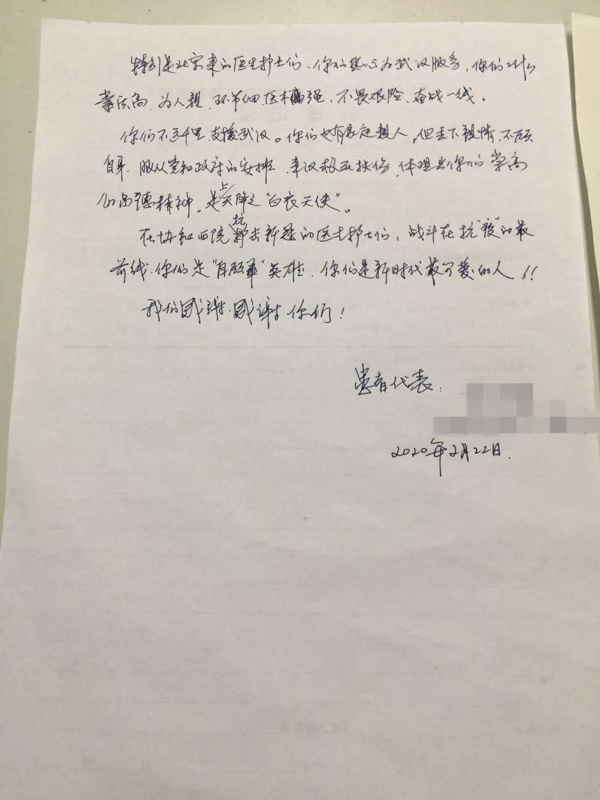 特别是北京来的医生护士们，你们热心为武汉服务，你们
素质高，为人亲，环节细 医术高强，不畏艰险，奋战一线。
你们不远千里，支援武汉。你们也有家庭亲人，但丢下亲情，不顾
自身，服从党和政府的安排，来汉救死扶伤，体现出你们崇高
的高德精神，是上天降之"白衣天使"。
在协和西院抗击新冠的医生护士们，战斗在抗"疫"的最
前线，你们是英雄，你们是新时代最可爱的人！！
我们感谢，感谢你们！
患者代表：
2020年2月22日.